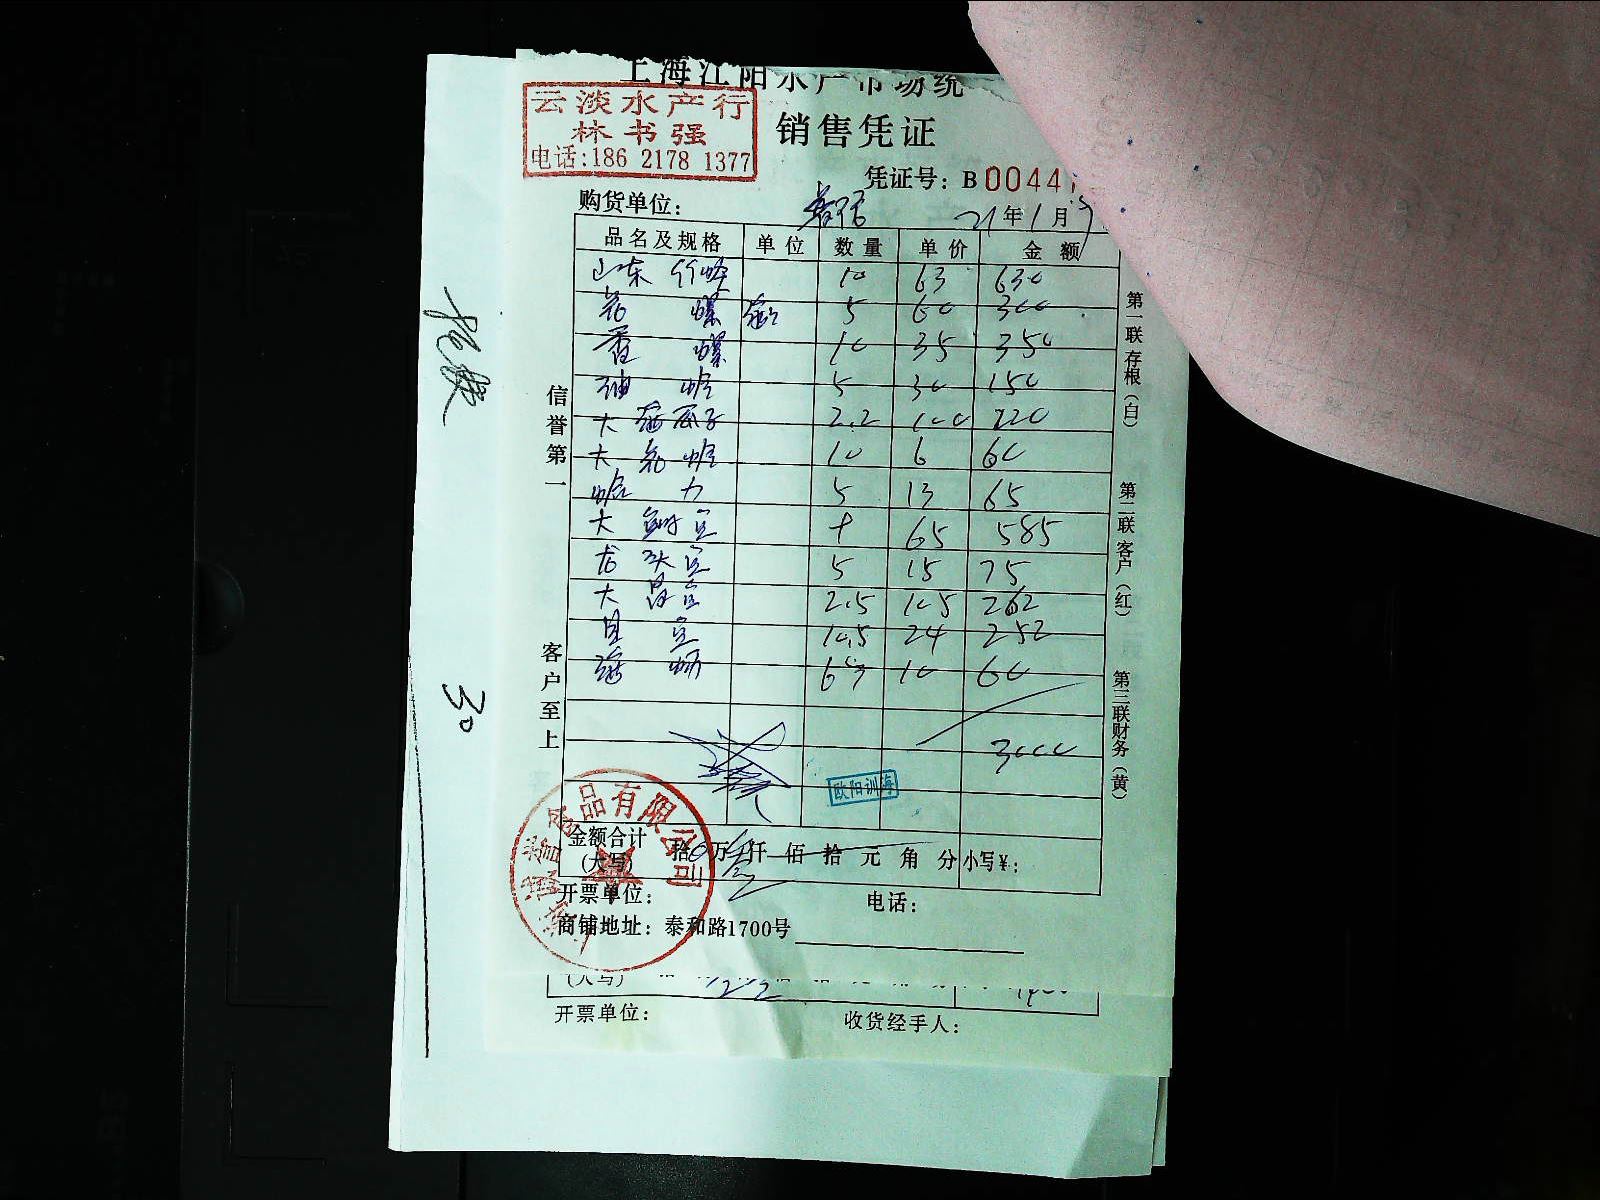 上海江阳水产市场统
云淡水产行
林书强
电话:186 2178 1377
销售凭证
凭证号: B 0044
购货单位:
21年1月
品名及规格 单位 数量 单价 金额
山东 10 63 630
花 螺 5 60 300
香 螺 10 35 350
油 蛤 5 30 150
大 海瓜子 2.2 100 220
大 花 蛤 10 6 60
蛤 力 5 13 65
大 65 585
龙头 5 15 75
大 2.5 105 262
10.5 24 252
海 10 60
3000
欧阳训海
食品有限公司
金额合计
(大写)
拾 万 仟 佰 拾 元 角 分 小写¥:
开票单位:
电话:
商铺地址: 泰和路1700号
信誉第一
客户至上
第一联存根(白)
第二联客户(红)
第三联财务(黄)
(大写)
开票单位:
收货经手人:
30